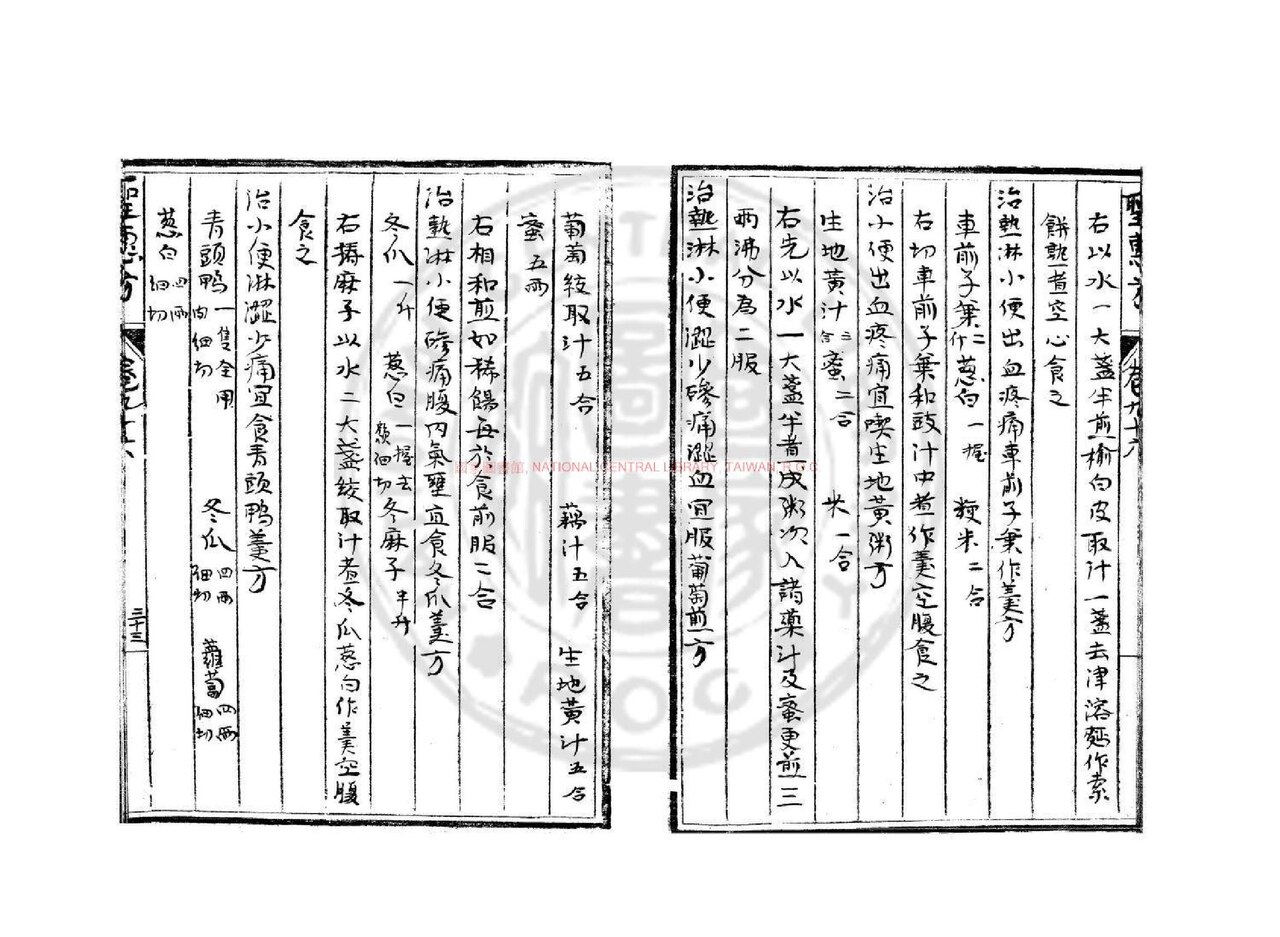 右以水一大盞半煎榆白皮取汁一盞去津溶麪作索
餅熟煮空心食之
治熱淋小便出血疼痛車前子葉作羹方
車前子葉二斤 葱白一握 粳米二合
右切車前子葉和豉汁中煮作羹空腹食之
治小便出血疼痛宜喫生地黄粥方
生地黄汁三合 蜜二合 米一合
右先以水一大盞半煮成粥次入諸藥汁及蜜更煎三
兩沸分為二服
治熱淋小便澀少磣痛澀血宜服葡萄煎方
聖惠方 卷九十六
葡萄絞取汁五合 藕汁五合 生地黄汁五合
蜜五兩
右相和煎如稀餳每於食前服二合
治熱淋小便磣痛腹内氣壅宜食冬瓜羹方
冬瓜一升 葱白一握去鬚細切 冬麻子半升
右擣麻子以水二大盞絞取汁煮冬瓜葱白作羹空腹
食之
治小便淋澀少痛宜食青頭鴨羹方
青頭鴨一隻全用肉細切 冬瓜四兩細切 蘿蔔四兩細切
葱白四兩細切
聖惠方 卷九十六 三十三
國家圖書館, NATIONAL CENTRAL LIBRARY, TAIWAN, R.O.C